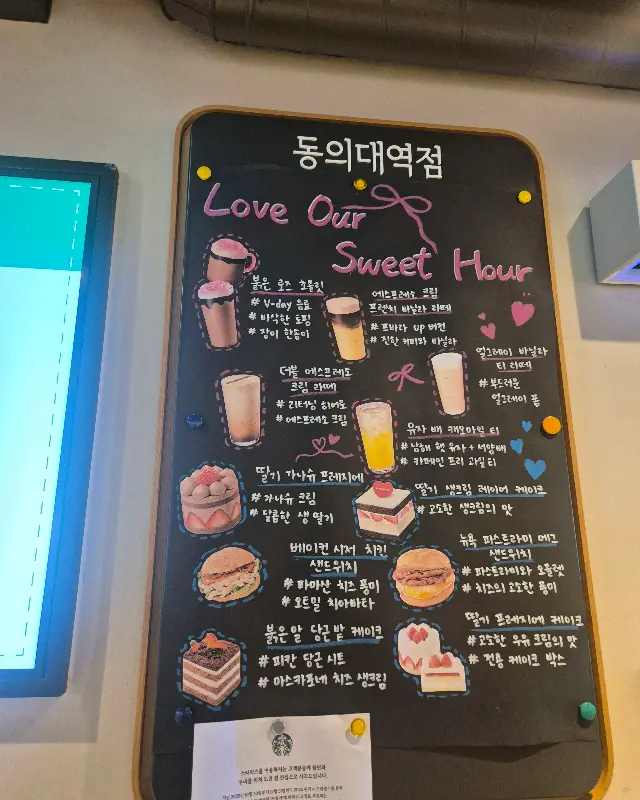 동의대역점
Love Our
Sweet Hour
붉은 로즈 초콜릿
# V-day 음료
# 바삭한 토핑
# 장미 한송이
에스프레소 크림
프렌치 바닐라 라떼
# 프바라 up 버전
# 진한 커피와 바닐라
얼그레이 바닐라
티 라떼
# 부드러운
얼그레이 폼
더블 에스프레소
크림 라떼
# 리터닝 히어로
# 에스프레소 크림
유자 배 캐모마일 티
# 남해 햇 유자 + 서양배
# 카페인 프리 과일티
딸기 가나슈 프레지에
# 가나슈 크림
# 달콤한 생 딸기
딸기 생크림 레이어 케이크
# 고소한 생크림의 맛
베이컨 시저 치킨
샌드위치
# 파마산 치즈 풍미
# 오트밀 치아바타
뉴욕 파스트라미 에그
샌드위치
# 파스트라미와 오믈렛
# 치즈의 고소한 풍미
붉은말 당근밭 케이크
# 피칸 당근 시트
# 마스카포네 치즈 생크림
딸기 프레지에 케이크
# 고소한 우유 크림의 맛
# 전통 케이크 박스
스타벅스를 이용하시는 고객분들께 불편과